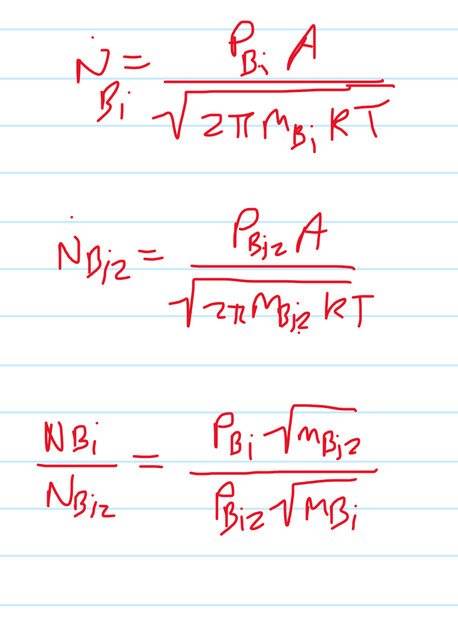 Ṅ_Bi = P_Bi A / √(2π m_Bi kT)
Ṅ_Bi2 = P_Bi2 A / √(2π m_Bi2 kT)
N_Bi / N_Bi2 = P_Bi √m_Bi2 / P_Bi2 √m_Bi